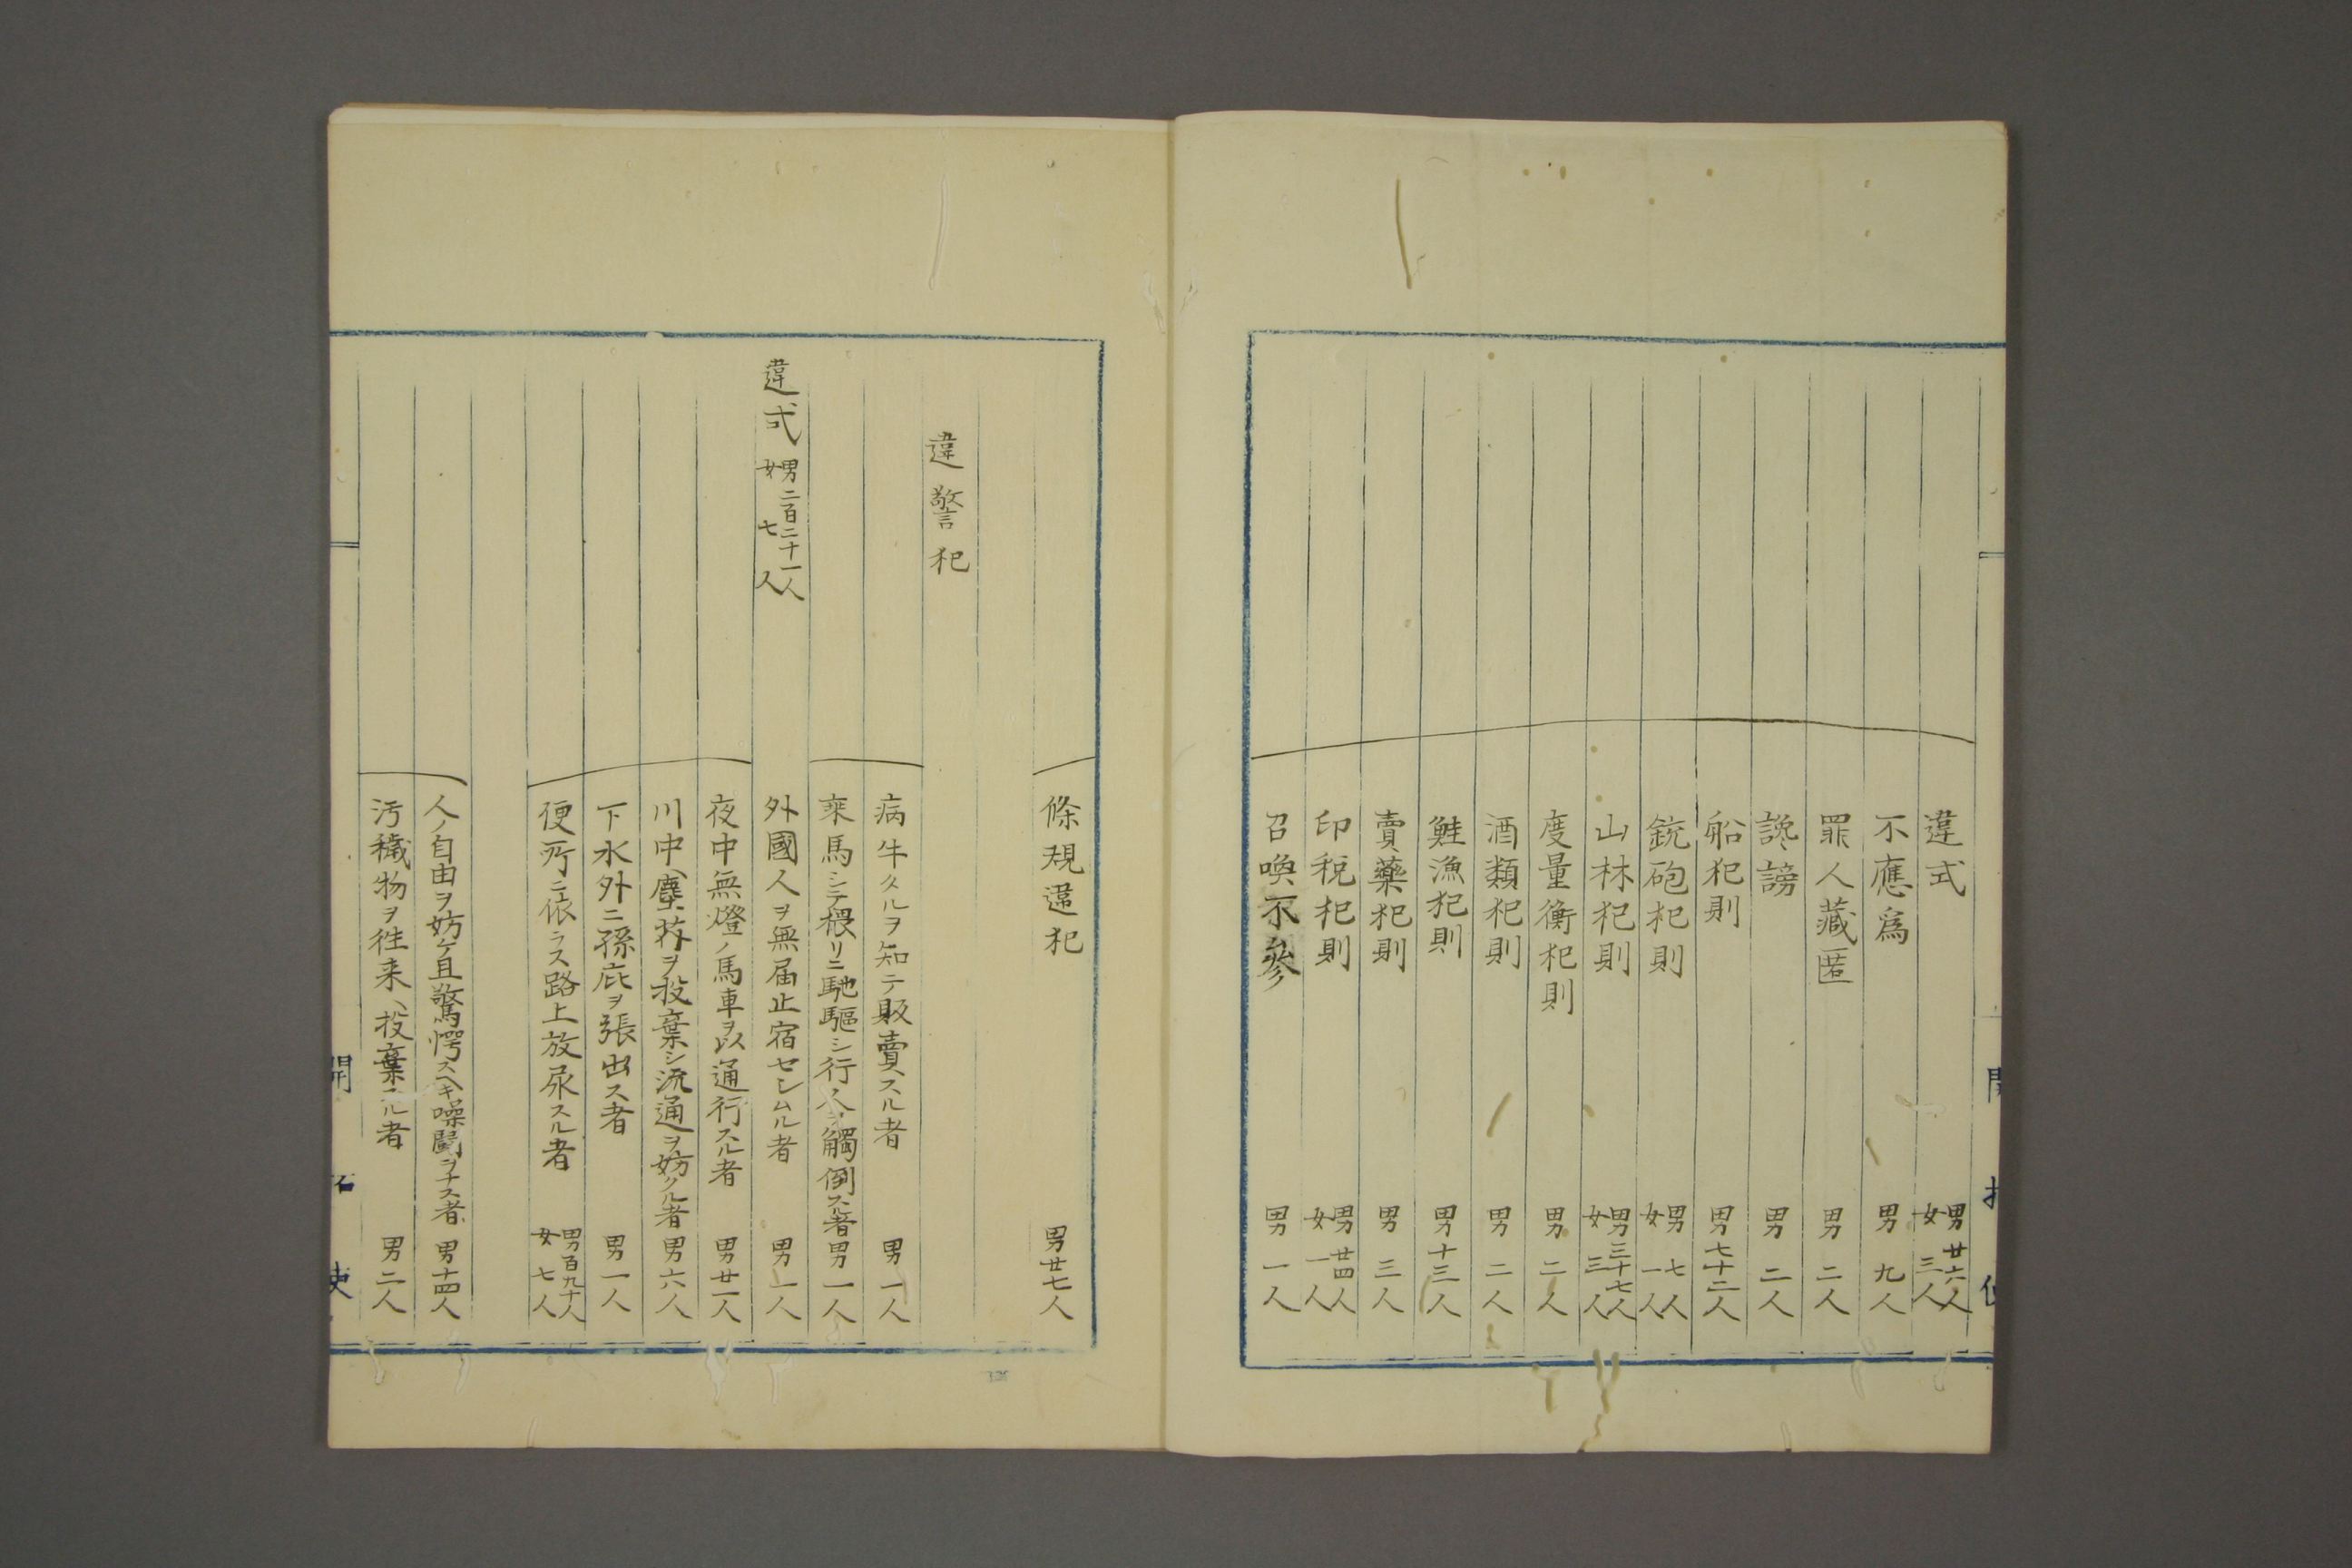 違式 男廿六人 女三人
不應為 男九人
罪人藏匿 男二人
讒謗 男二人
船犯則 男七十二人
銃砲犯則 男七人 女一人
山林犯則 男三十七人 女三人
度量衡犯則 男二人
酒類犯則 男二人
鮭漁犯則 男十三人
賣藥犯則 男三人
印税犯則 男廿四人 女一人
召喚不參 男一人
條規違犯 男廿七人
違警犯
病牛タルヲ知テ販賣スル者 男一人
乘馬シテ猥リニ馳驅シ行人ヲ觸倒ス者 男一人
違式 男二百二十一人 女七人
外國人ヲ無届止宿セシムル者 男一人
夜中無燈ノ馬車ヲ以通行スル者 男廿一人
川中ヘ塵芥ヲ投棄シ流通ヲ妨クル者 男六人
下水外ニ孫庇ヲ張出ス者 男一人
便所ニ依ラス路上放尿スル者 男百九十人 女七人
人ノ自由ヲ妨ケ且驚愕スヘキ噪鬧ヲナス者 男十四人
汚穢物ヲ往来ヘ投棄スル者 男二人
開拓使